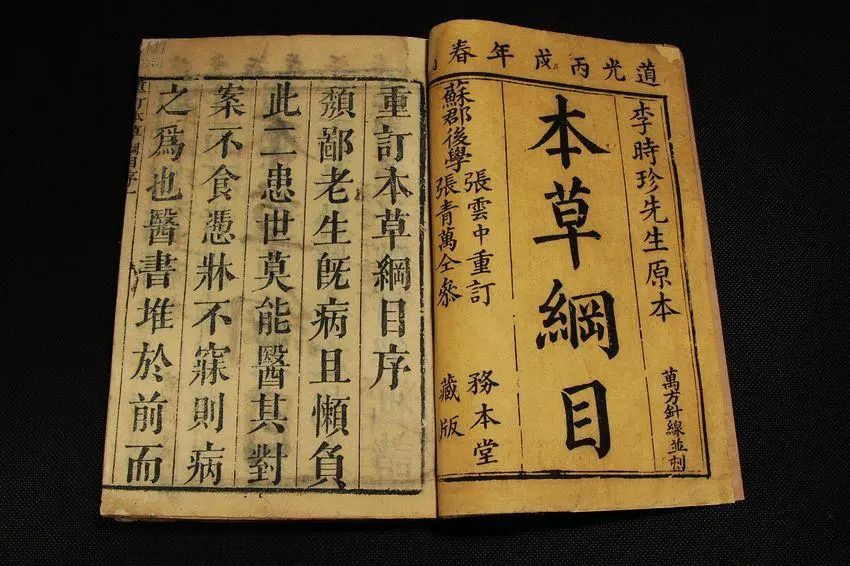 道光丙戌年春
李時珍先生原本
萬方針線並刻
本草綱目
蘇郡後學
張雲中重訂
張青萬仝參
務本堂
藏版
重訂本草綱目序
頹鄙老生旣病且懶負
此二患世莫能醫其對
案不食憑牀不寐則病
之爲也醫書堆於前而